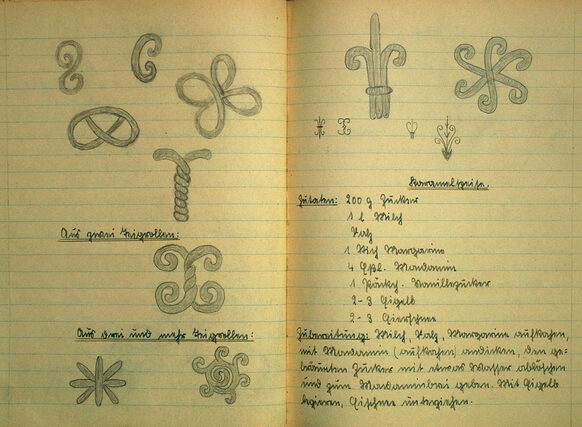 Aus zwei Teigrollen:
Aus drei und mehr Teigrollen:
Karamelspeise.
Zutaten: 200 g Zucker
1 l Milch
Salz
1 Stich Margarine
4 Eßl. Mondamin
1 Päckch. Vanillezucker
2-3 Eigelb
2-3 Eierschnee
Zubereitung: Milch, Salz, Margarine aufkochen,
mit Mondamin (aufkochen) andicken, den ge-
bräunten Zucker mit etwas Wasser ablöschen
und zum Mondaminbrei geben. Mit Eigelb
legieren, Eischnee unterziehen.